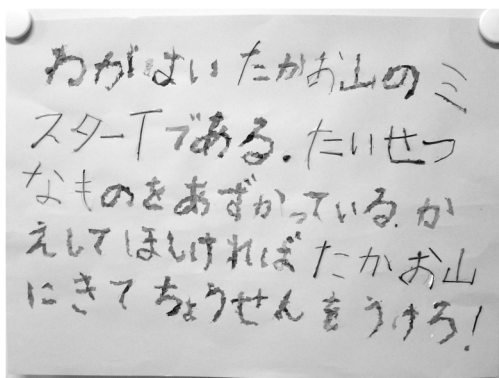 わがはいたかお山のミ
スターTである.たいせつ
なものをあずかっている.か
えしてほしければたかお山
にきてちょうせんをうけろ!